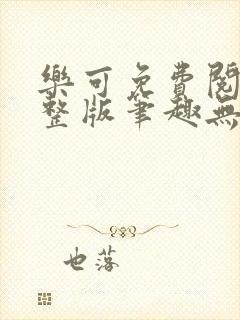 樂可免費閱
整版筆趣無
也落